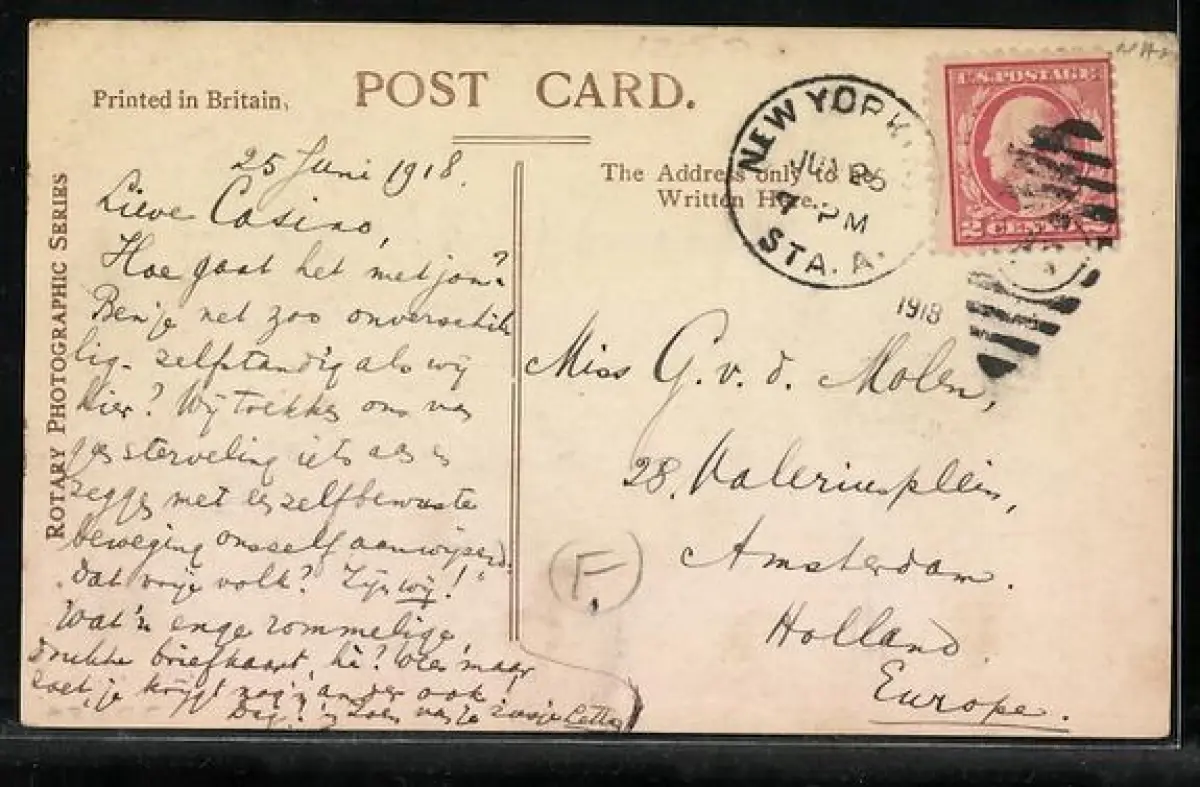 Printed in Britain.
POST CARD.
ROTARY PHOTOGRAPHIC SERIES
The Address only to be
Written Here.
NEW YORK,
JUN 25
7 PM
STA. A.
1918
U.S. POSTAGE
2 CENTS 2
25 Juni 1918.
Lieve Casino,
Hoe gaat het met jou?
Ben je net zoo onverschil
lig- zelfstandig als wij
hier? Wij trekken ons van
geen sterveling iets aan en
zeggen met een zelfbewuste
beweging onszelf aanwijzend
"Dat vrije volk? Zijn wij!"
Wat 'n enge rommelige,
drukke briefkaart, hè? maar
zoet, je krijgt nog 'n ander ook!
Dag! 'n Zoen van je zusje
Miss G. v. d. Molen,
28, Valeriusplein,
Amsterdam.
Holland
Europe.
F